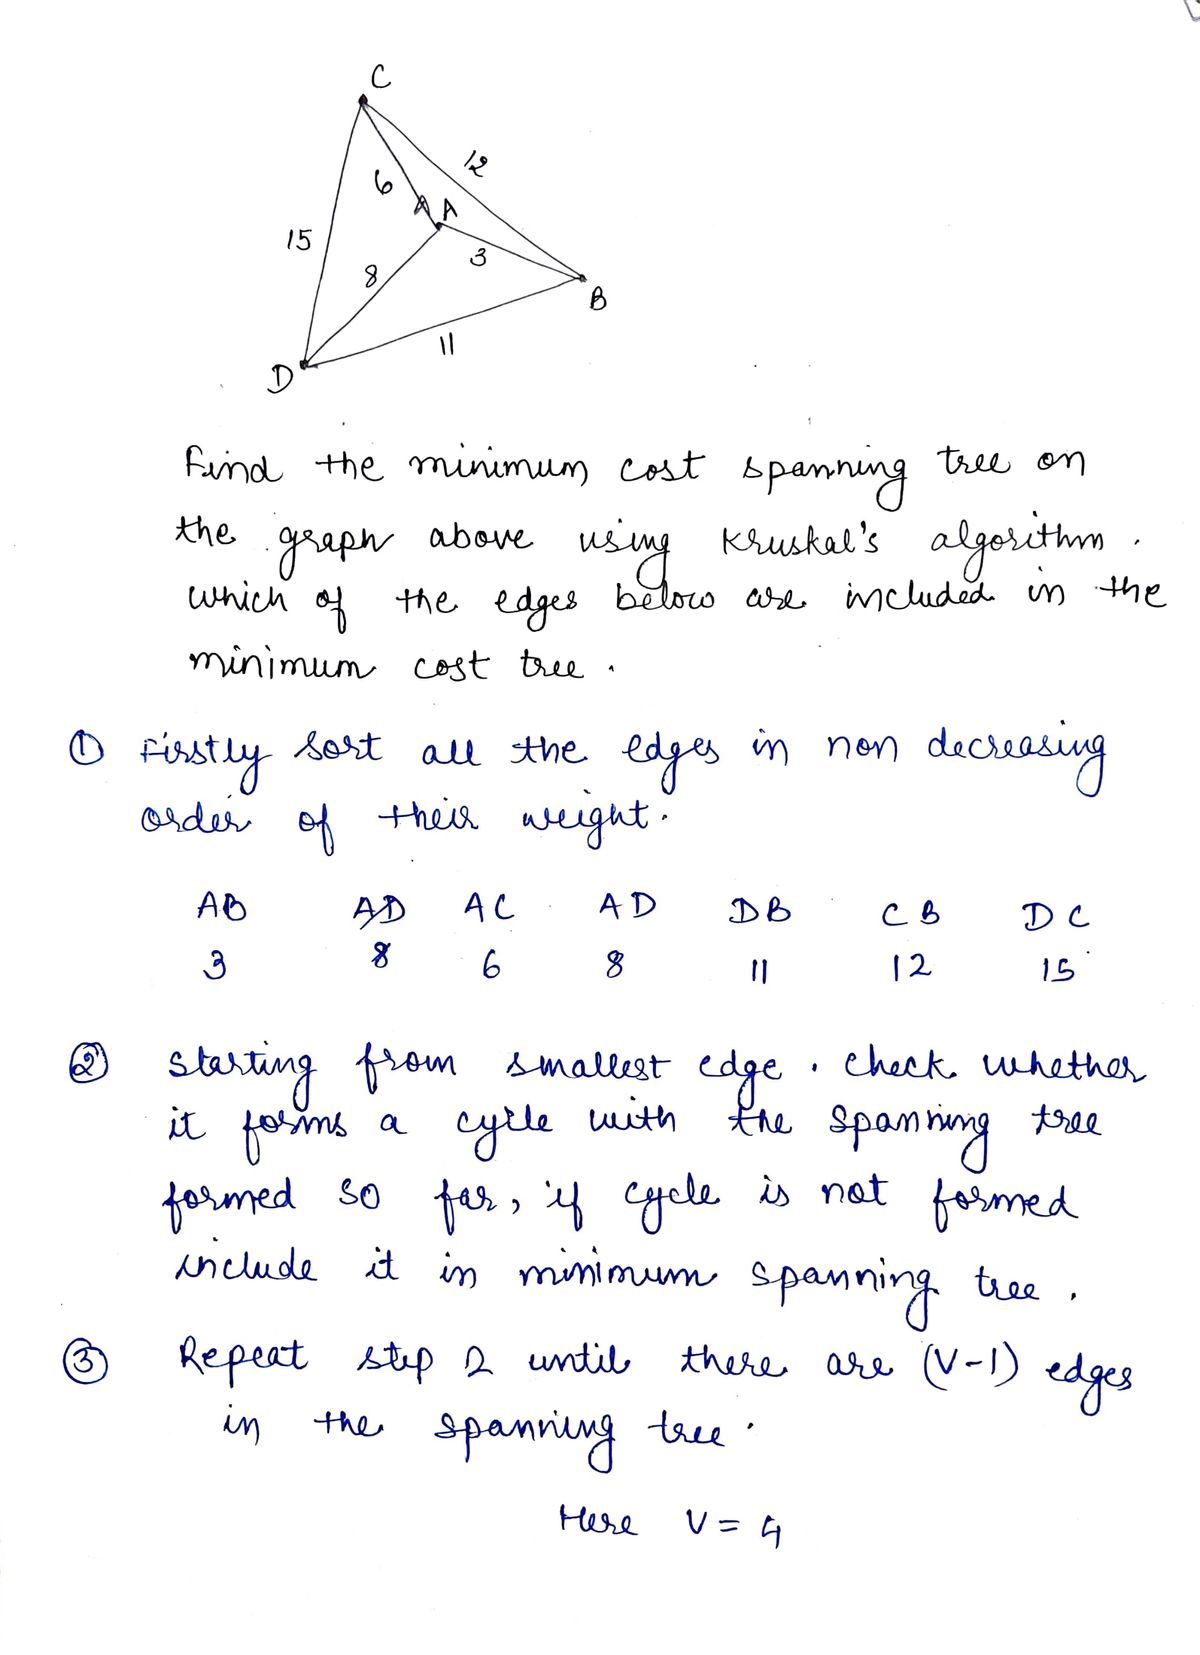 C
12
6
A A
15
3
8
B
11
D
Find the minimum cost spanning tree on
the graph above using Kruskal's algorithm.
which of the edges below are included in the
minimum cost tree.
① Firstly sort all the edges in non decreasing
order of their weight.
AB AD AC AD DB CB DC
3 8 6 8 11 12 15
② Starting from smallest edge. check whether
it forms a cycle with the spanning tree
formed so far, if cycle is not formed
include it in minimum spanning tree.
③ Repeat step 2 until there are (V-1) edges
in the spanning tree.
Here V = 4